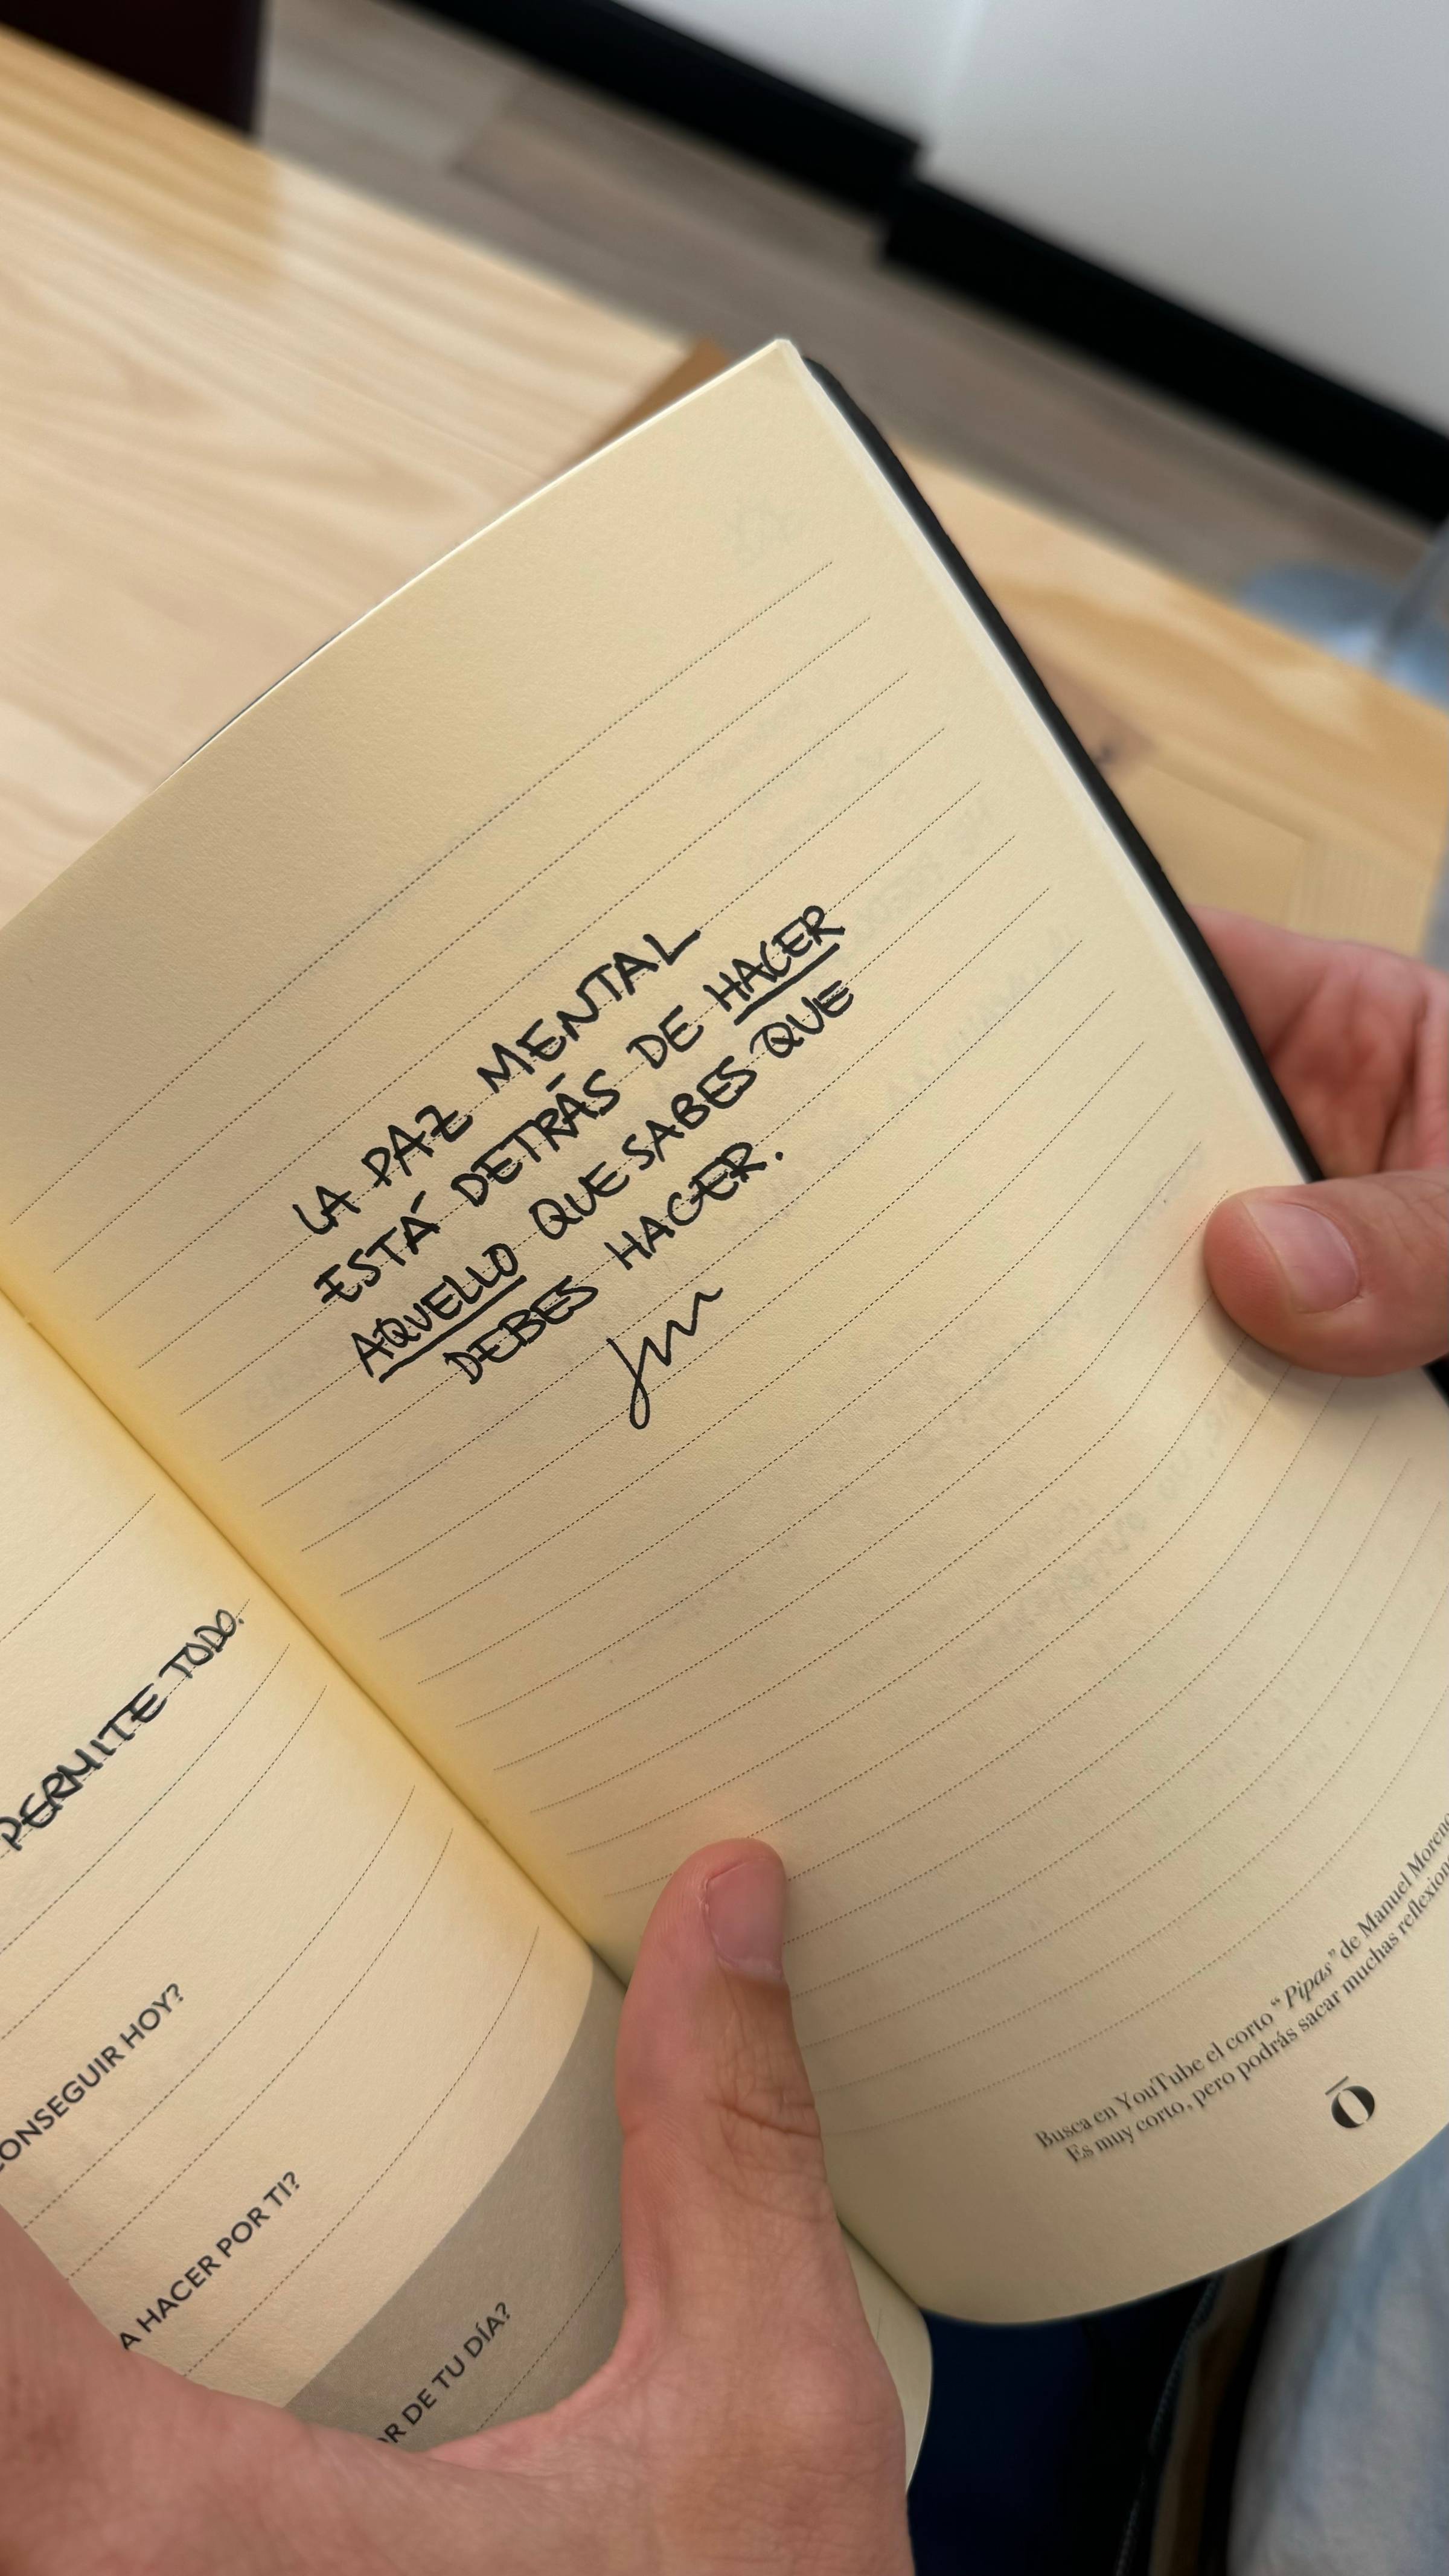 PERMITE TODO.
CONSEGUIR HOY?
A HACER POR TI?
DE TU DÍA?
LA PAZ MENTAL
ESTÁ DETRÁS DE HACER
AQUELLO QUE SABES QUE
DEBES HACER.
Busca en YouTube el corto “Pipas” de Manuel
Es muy corto, pero podrás sacar muchas
Ō